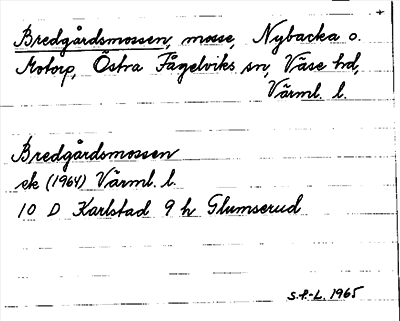 Bredgårdsmossen, mosse, Nybacka o.
Motorp, Östra Fågelviks sn, Väse hd,
Värml. l.
Bredgårdsmossen
ek (1964) Värml. l.
10 D Karlstad 9 h Glumserud
S.F.-L. 1965